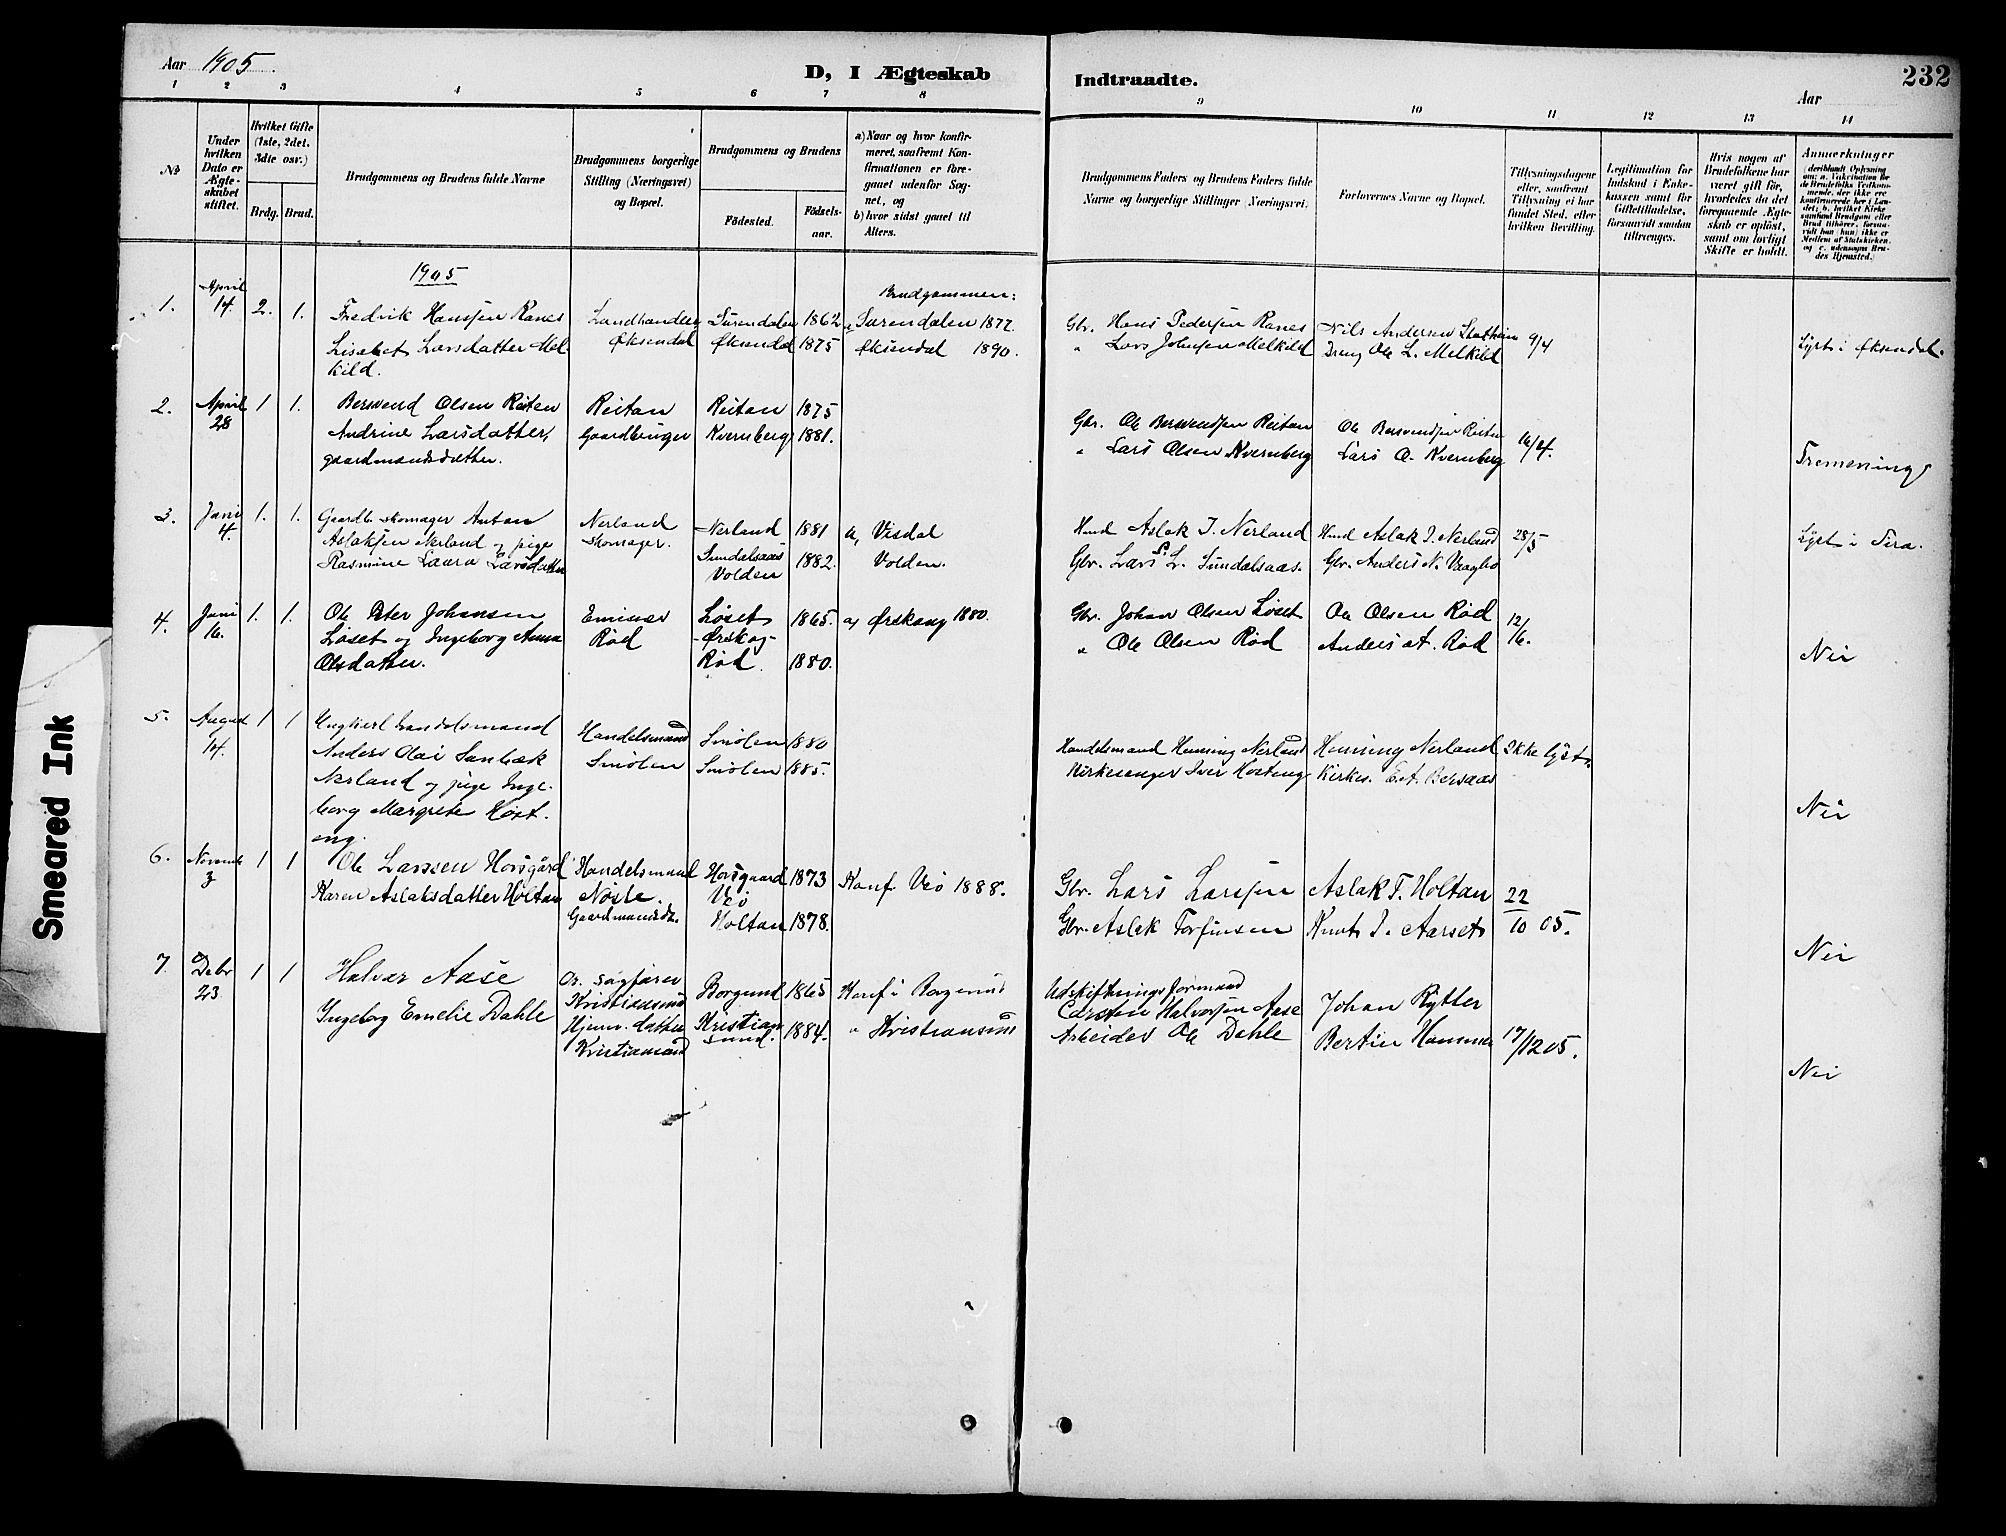 Aar 1905.
D, I Ægteskab
Indtraadte.
232
Aar
1 2 3 4 5 6 7 8 9 10 11 12 13 14
№
Under hvilken Dato er Ægteskabet stiftet.
Hvilket Gifte (1ste, 2det, 3dte osv.)
Brdg. Brud.
Brudgommens og Brudens fulde Navne
Brudgommens borgerlige Stilling (Næringsvei) og Bopæl.
Brudgommens og Brudens
Fødested.
Fødselsaar.
a) Naar og hvor konfirmeret, saafremt Konfirmationen er foregaaet udenfor Sognet, og
b) hvor sidst gaaet til Alters.
Brudgommens Faders og Brudens Faders fulde Navne og borgerlige Stillinger (Næringsvei).
Forlovernes Navne og Bopæl.
Tillysningsdagene eller, saafremt Tillysning ei har fundet Sted, efter hvilken Bevilling.
Legitimation for Indskud i Enkekassen samt for Giftetilladelse, forsaavidt saadan tiltrænges.
Hvis nogen af Brudefolkene har været gift før, hvorledes da det foregaaende Ægteskab er opløst, samt om lovligt Skifte er holdt.
Anmærkninger
1905
1. April 14. 2. 1. Fredrik Hanssen Ranes Landhandler Surendalen 1862 Brudgommen: Surendalen 1877. Gbr. Hans Pedersen Ranes Nils Andersen 9/4
Lisabet Larsdatter Melkild. Øksendal Øksendal 1875 Øksendal 1890. " Lars Johnsen Melkild Dreng Ole L. Melkild Lyst i Øksendal.
2. April 28 1 1. Bersvend Olsen Reiten Reitan Reitan 1875 Gbr. Ole Bersvendsen Reitan Ole Bersvendsen Reitan 16/4.
Andrine Larsdatter, Gaardbruger Kvernberg 1881. " Lars Olsen Kvernberg Lars O. Kvernberg
gaardmandsdatter. Tremening
3. Juni 4. 1. 1. Gaardb. skomager Anton Nerland Nerland 1881 a, Visdal Hmd Aslak I. Nerland Hmd Aslak I. Nerland 28/5 Lyst i
Aslaksen Nerland og pige skomager. Sundalsaas
Rasmine Laura Larsdatter Volden 1882. Volden. Gbr. Lars L. Sundalsaas. Gbr. Anders N. Vaagbø
4. Juni 16. 1. 1. Ole Peter Johansen Løset 1865. a, Ørskoug 1880. Gbr. Johan Olsen Løset Ole Olsen Rød 12/6.
Løset og Ingeborg Anna Rød Ørskog " Ole Olsen Rød Anders A. Rød
Olsdatter. Rød. 1880. Nei
5. August 14. 1 1 Ungkarl handelsmand Handelsmand Smølen 1880 Handelsmand Henning Nerland Henning Nerland Ikke lyst.
Anders Olai Sanbæk Smölen Smölen 1885. Kirkesanger Iver Høsteng Kirkes. E. A. Bersaas
Nerland og pige Inge-
borg Margrete Høst-
eng. Nei
6. Novemb 3 1 1 Ole Larssen Horsgård Handelsmand Horsgaard 1873 Konf. Veö 1888. Gbr. Lars Larssen Aslak T. Holtan 22
Karen Aslaksdatter Holtan Nöste. Veö
Gaardmandsdt. Holtan 1878. Gbr. Aslak Torfinsen Knut I. Aarset 10 05.
Nei
7 Debr 23 1 1 Halvar Aase Or. sagfører Borgund 1865 Konf i Borgund Udskiftningsformand Johan Rytter
Ingeborg Emelie Dahle Kristianssund Carsten Halvorsen Aase
Hjemv. datter Kristiansund. 1884. " Kristianssund Arbeider Ole Dahle Bertin Hammer 17/12 05.
Kristiansund Nei
Smeared Ink